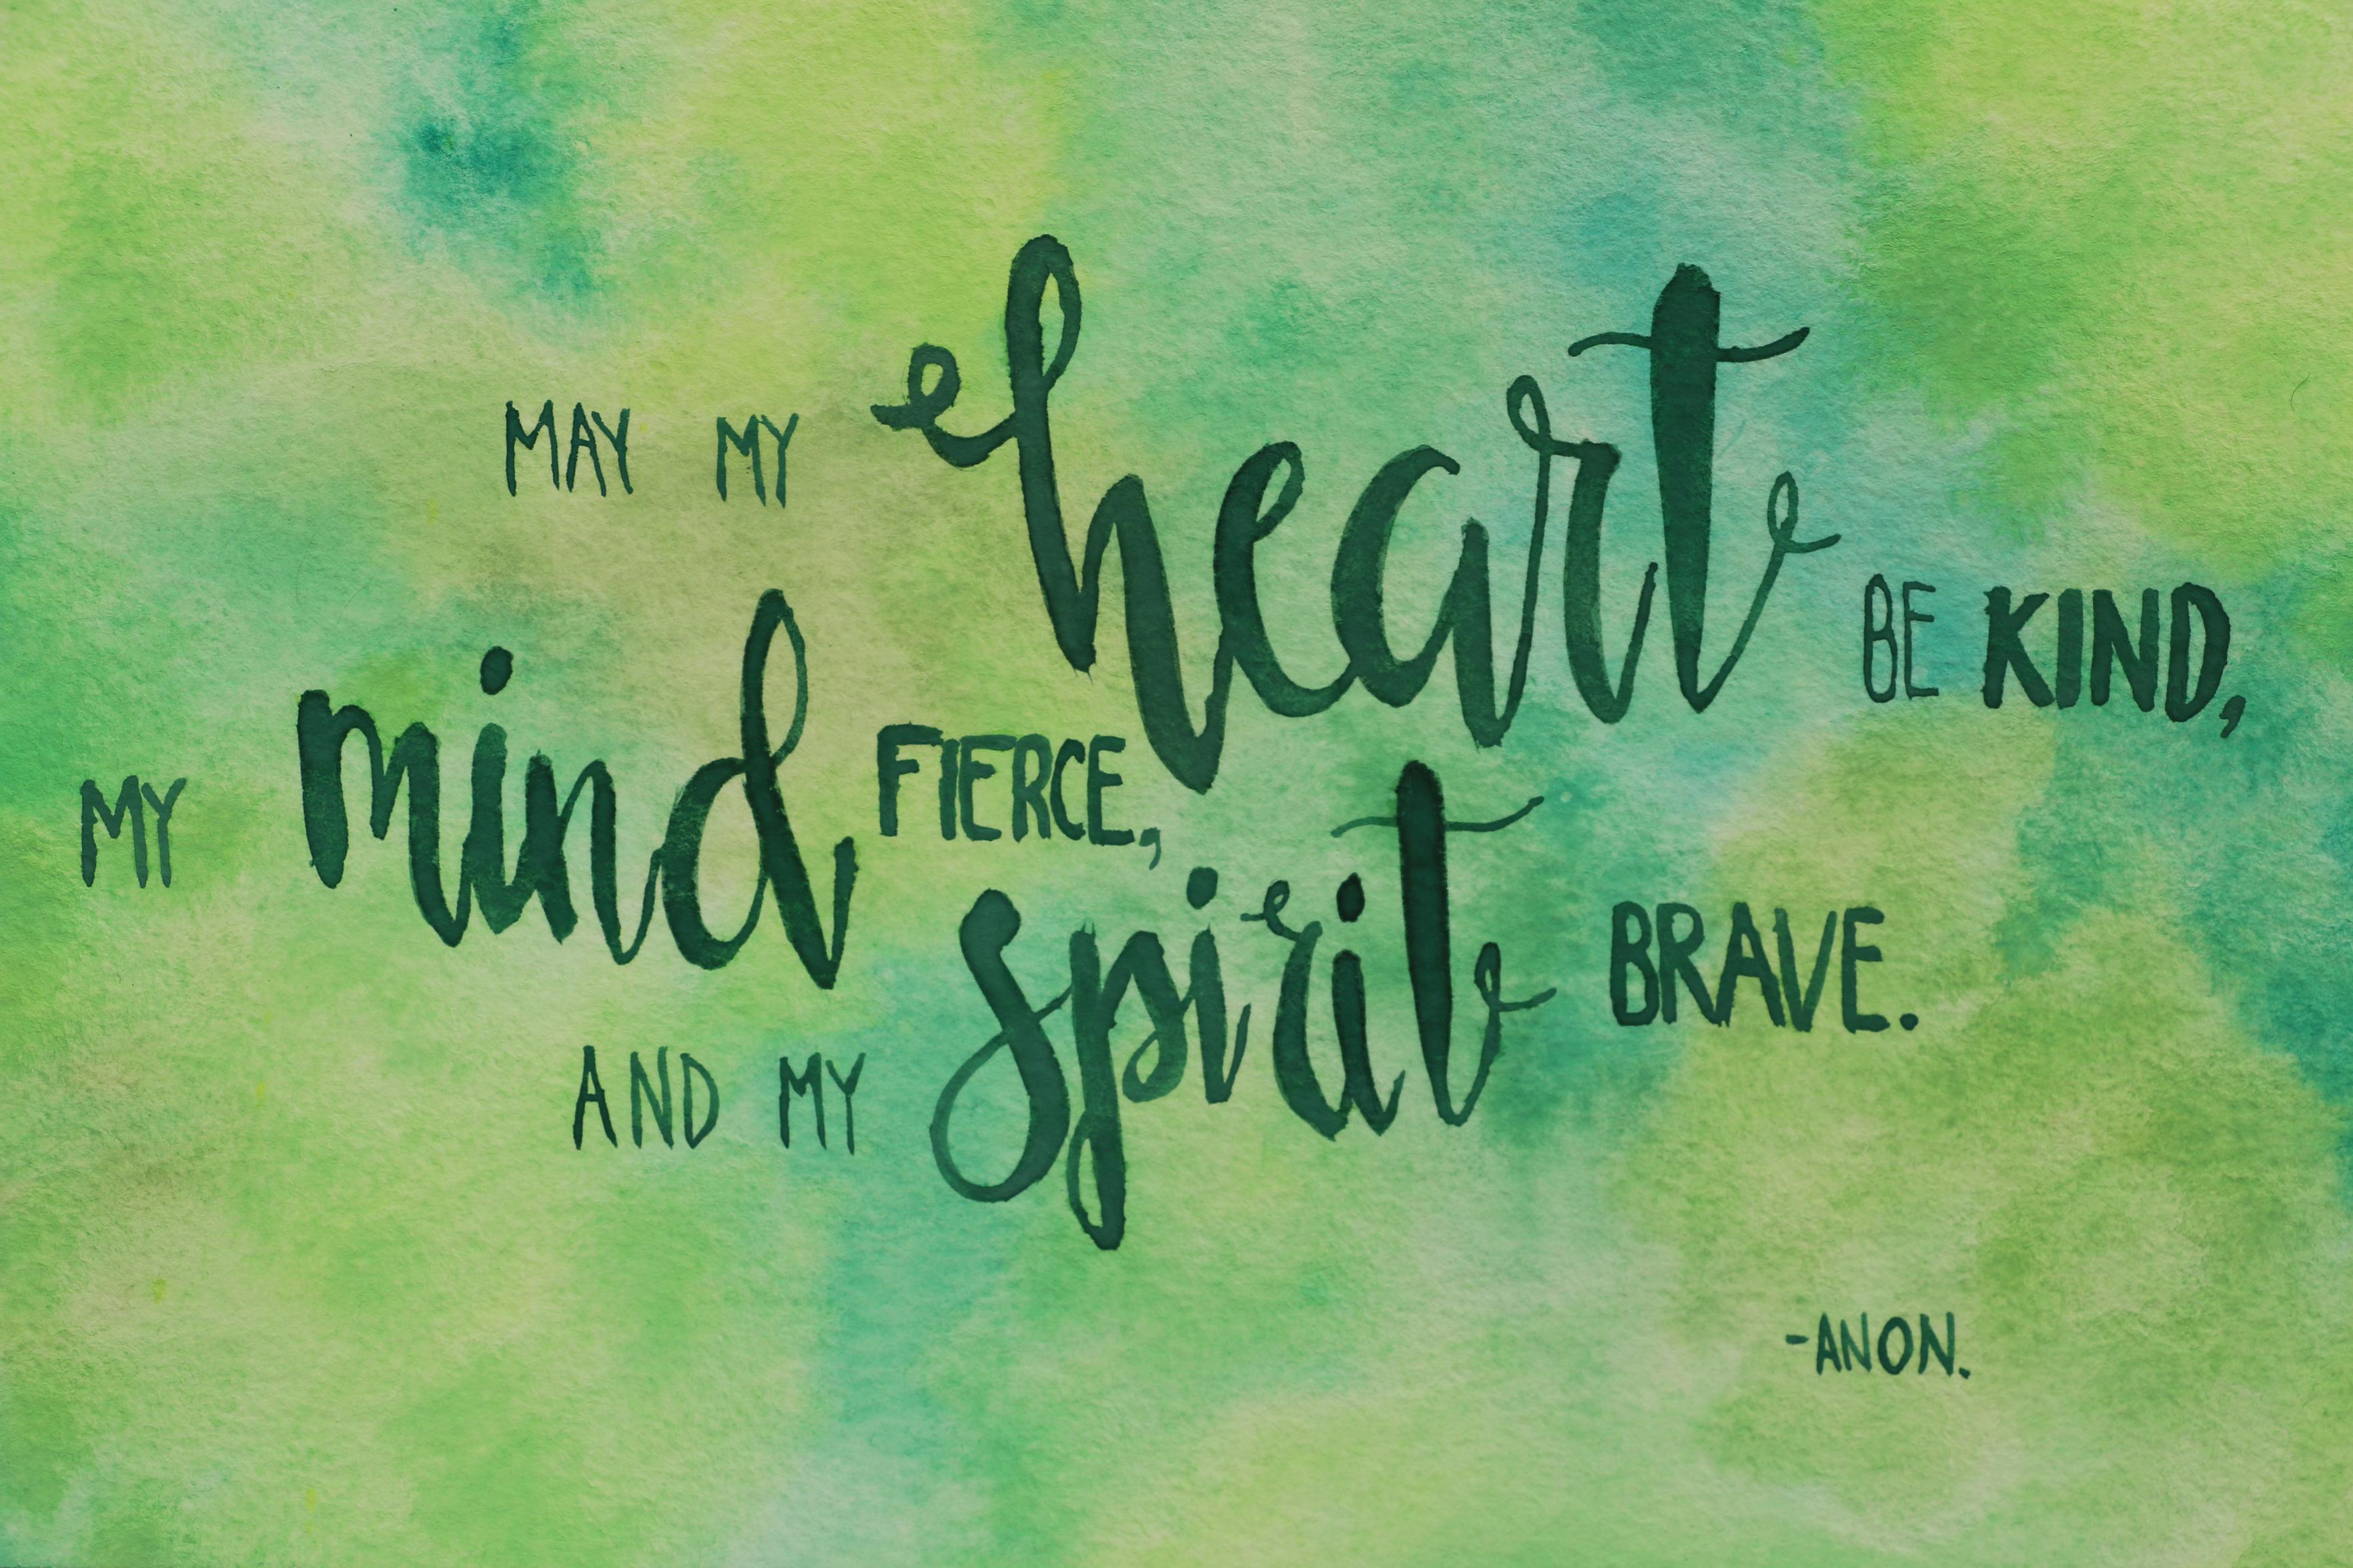 MAY MY heart BE KIND,
MY mind FIERCE,
AND MY spirit BRAVE.
-ANON.